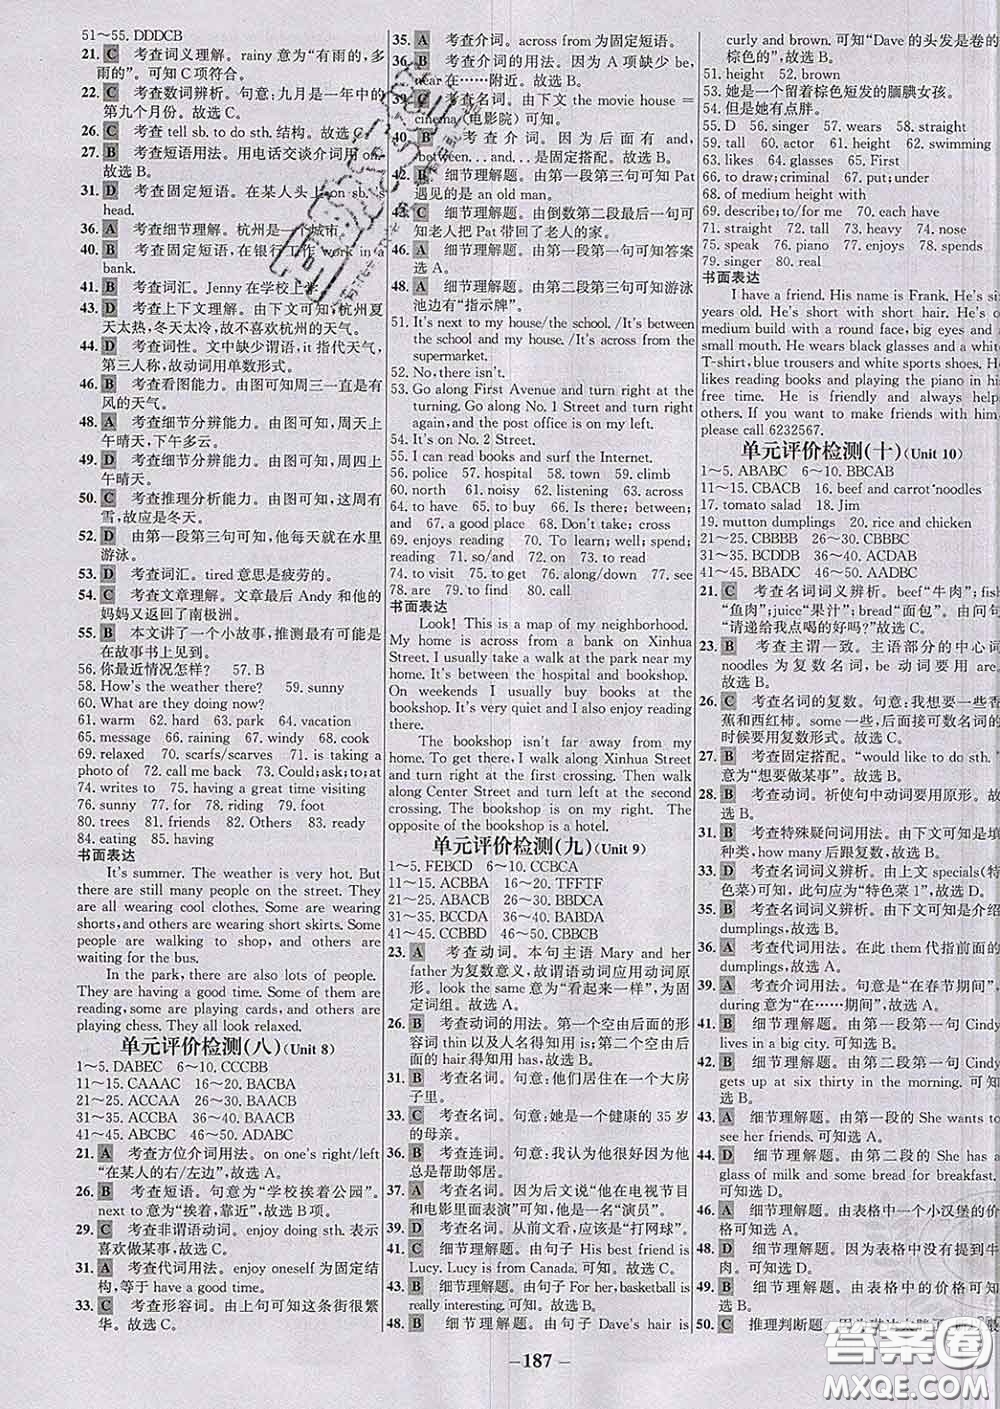 51～55. DDDCB
21. C 考查词义理解。rainy 意为“有雨的,多
雨的”。可知 C 项符合。
22. C 考查数词辨析。句意:九月是一年中的
第九个月份。故选 C。
26. C 考查 tell sb. to do sth. 结构。故选 C。
27. B 考查短语用法。用电话交谈介词用 on.
故选 B。
31. D 考查固定短语。在某人头上 on sb.'s
head.
36. A 考查细节理解。杭州是一个城市。
38. B 考查固定短语,在银行工作 work in a
bank.
41. B 考查词汇。Jenny 在学校上学。
43. D 考查上下文理解。由下文可知,杭州夏
天太热,冬天太冷,故不喜欢杭州的天气。
44. D 考查词性。文中缺少谓语,it 指代天气,
第三人称,故动词用单数形式。
46. B 考查看图能力。由图可知周三一直是有
风的天气。
48. A 考查细节分辨能力。由图可知,周天上
午晴天,下午多云。
49. D 考查细节分辨能力。由图可知,周四上
午晴天。
50. C 考查推理分析能力。由图可知,这周有
雪,故应是冬天。
52. D 由第一段第三句可知,他每天就在水里
游泳。
53. D 考查词汇。tired 意思是疲劳的。
54. C 考查文章理解。文章最后 Andy 和他的
妈妈又返回了南极洲。
55. B 本文讲了一个小故事,推测最有可能是
在故事书上见到。
56. 你最近情况怎样? 57. B
58. How's the weather there? 59. sunny
60. What are they doing now?
61. warm 62. hard 63. park 64. vacation
65. message 66. raining 67. windy 68. cook
69. relaxed 70. scarfs/scarves 71. is taking a
photo of 72. call me back 73. Could; ask; to
74. writes to 75. having a great time visiting
76. sunny 77. for 78. riding 79. foot
80. trees 81. friends 82. Others 83. ready
84. eating 85. having
书面表达
It's summer. The weather is very hot. But
there are still many people on the street. They
are all wearing cool clothes. Some are wearing
shorts, and others are wearing short skirts. Some
people are walking to shop, and others are
waiting for the bus.
In the park, there are also lots of people.
They are having a good time. Some of them are
reading, some are playing cards, and others are
playing chess. They all look relaxed.
单元评价检测(八)(Unit 8)
1～5. DABEC 6～10. CCCBB
11～15. CAAAC 16～20. BACBA
21～25. ACCAA 26～30. BACCA
31～35. ACCBA 36～40. BAACB
41～45. ABCBC 46～50. ADABC
21. A 考查方位介词用法。on one's right/left
“在某人的右/左边”,故选 A。
26. B 考查短语。句意为“学校挨着公园”。
next to 意为“挨着,靠近”,故选 B 项。
29. C 考查非谓语动词。enjoy doing sth. 表示
喜欢做某事,故选 C。
31. A 考查代词用法。enjoy oneself 为固定结
构,等于 have a good time.
33. C 考查形容词。由上句可知这条街很繁
华。故选 C。
35. A 考查介词。across from 为固定短语。
36. B 考查介词的用法。因为 A 项缺少 be,
near 在……附近。故选 B。
39. C 考查名词。由下文 the movie house =
cinema(电影院)可知。
40. B 考查介词。因为后面有 and,
between...and...是固定搭配。故选 B。
42. B 细节理解题。由第一段第三句可知 Pat
遇见的是 an old man.
43. C 细节理解题。由倒数第二段最后一句可
知老人把 Pat 带回了老人的家。
46. A 细节理解题。由第一段第一句可知答案
选 A。
48. A 细节理解题。由第二段第三句可知游泳
池边有“指示牌”。
51. It's next to my house/the school. /It's between
the school and my house. /It's across from the
supermarket.
52. No, there isn't.
53. Go along First Avenue and turn right at the
turning. Go along No. 1 Street and turn right
again, and the post office is on my left.
54. It's on No. 2 Street.
55. I can read books and surf the Internet.
56. police 57. hospital 58. town 59. climb
60. north 61. noisy 62. listening 63. across
64. to have 65. to buy 66. Is there; between;
and 67. a good place 68. Don't take; cross
69. enjoys reading 70. To learn; well; spend;
reading 71. so/and 72. on 73. to read
74. to visit 75. to get 76. well 77. days
78. see 79. for 80. call
书面表达
Look! This is a map of my neighborhood.
My home is across from a bank on Xinhua
Street. I usually take a walk at the park near my
home. It's between the hospital and bookshop.
On weekends I usually buy books at the
bookshop. It's very quiet and I also enjoy reading
there.
The bookshop isn't far away from my
home. To get there, I walk along Xinhua Street
and turn right at the first crossing. Then walk
along Center Street and turn left at the second
crossing. The bookshop is on my right. The
opposite of the bookshop is a hotel.
单元评价检测(九)(Unit 9)
1～5. FEBCD 6～10. CCBCA
11～15. ACBBA 16～20. TFFTF
21～25. ABACB 26～30. BBDCA
31～35. BCCDA 36～40. BABDA
41～45. CCBBD 46～50. CBBCB
23. A 考查动词。本句主语 Mary and her
father 为复数意义,故谓语动词应用动词原
形。look the same 意为“看起来一样”,为固
定词组。故选 A。
26. B 考查动词的用法。第一个空由后面的形
容词 thin 以及人名得知用 is;第二个空由后
面的 hair 得知用 has. 故选 B。
31. B 考查名词。句意:他们居住在一个大房
子里。
33. C 考查名词。句意:她是一个健康的 35 岁
的母亲。
36. B 考查连词。句意:我认为他很好因为他
总是帮助邻居。
37. A 考查名词。因为后文说“他在电视节目
和电影里面表演”可知,他是一名“演员”。
39. D 考查名词。从前文看,应该是“打网球”。
41. C 细节理解题。由句子 His best friend is
Lucy. Lucy is from Canada. 可知。故选 C。
42. C 细节理解题。由句子 For her, basketball is
really interesting. 可知。故选 C。
48. B 细节理解题。由句子 Dave's hair is
curly and brown. 可知“Dave 的头发是卷的
棕色的”,故选 B。
51. height 52. brown
53. 她是一个留着棕色短发的腼腆女孩。
54. 但是她有点胖。
55. D 56. singer 57. wears 58. straight
59. tall 60. medium 61. actor 62. swimming
63. likes 64. glasses 65. First
66. to draw; criminal 67. put; under
68. of medium height with
69. describe; to/for me 70. each have
71. straight 72. tall 73. heavy 74. nose
75. speak 76. piano 77. enjoys 78. spends
79. singer 80. real
书面表达
I have a friend. His name is Frank. He's six
years old. He's short with short hair. He's of
medium build with a round face, big eyes and a
small mouth. He wears black glasses and a white
T-shirt, blue trousers and white sports shoes. He
likes reading books and playing the piano in his
free time. He is friendly and always helps
others. If you want to make friends with him,
please call 6232567.
单元评价检测(十)(Unit 10)
1～5. ABABC 6～10. BBCAB
11～15. CBACB 16. beef and carrot noodles
17. tomato salad 18. Jim
19. mutton dumplings 20. rice and chicken
21～25. CBBBB 26～30. CBBBC
31～35. BCDDB 36～40. ACDAB
41～45. BBADC 46～50. AADBC
21. C 考查名词词义辨析。beef“牛肉”; fish
“鱼肉”;juice“果汁”;bread“面包”。由问句
“请递给我点喝的好吗?”故选 C。
23. B 考查主谓一致。主语部分的中心词
noodles 为复数名词,be 动词要用 are.
故选 B。
26. C 考查名词的复数。句意:我想要一些香
蕉和西红柿。some 一些,后面接可数名词的
时候要用复数形式。故选 C。
27. B 考查固定搭配。“would like to do sth.
意为“想要做某事”。故选 B。
28. B 考查动词。祈使句中动词要用原形。故
选 B。
31. B 考查特殊疑问词用法。由下文可知是
种类,how many 后跟复数。故选 B。
33. D 考查名词词义辨析。由上文 specials(特
色菜)可知,此句应为“特色菜 1”。故选 D。
35. B 考查名词词义辨析。由下文可知是介绍
dumplings,故选 B。
36. A 考查代词用法。在此 them 代指前面的
dumplings,故选 A。
39. A 考查介词用法。句意是“在春节期间”,
during 意为“在……期间”,故选 A。
41. B 细节理解题。由第一段第一句 Cindy
lives in a big city. 可知选 B。
42. B 细节理解题。由第二段第一句 Cindy
gets up at six thirty in the morning. 可知
选 B。
43. A 细节理解题。由第二段的 She wants to
see her friends. 可知选 A。
44. D 细节理解题。由第二段的 She has a
glass of milk and some bread for breakfast.
可知选 D。
46. A 细节理解题。由表格中一个小汉堡的价
格可知选 A。
48. D 细节理解题。因为表格中没有提到牛
肉。可知选 D。
49. B 细节理解题。由表格中的价格可知
选 B。
50. C 推理判断题。
—187—
答案圈
MXQE.COM